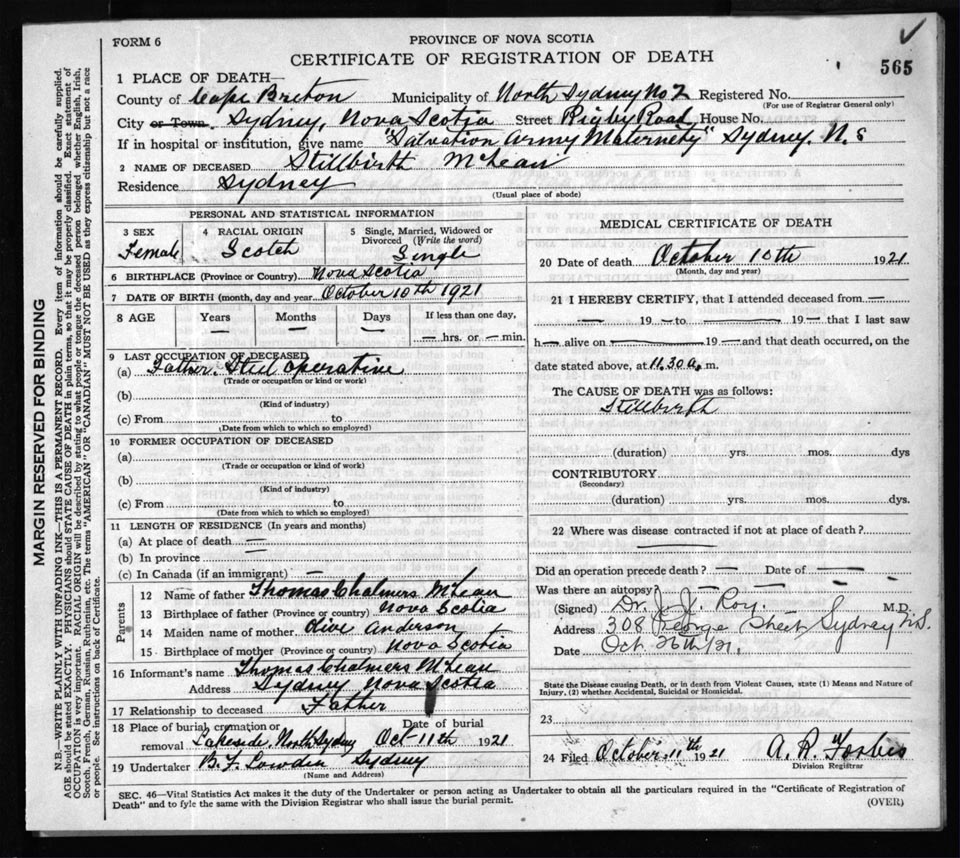 FORM 6
PROVINCE OF NOVA SCOTIA
CERTIFICATE OF REGISTRATION OF DEATH
565
1 PLACE OF DEATH—
County of Cape Breton Municipality of North Sydney No 2 Registered No.
(For use of Registrar General only)
City or Town. Sydney, Nova Scotia Street Rigby Road House No.
If in hospital or institution, give name "Salvation Army Maternity" Sydney. N. S
2 NAME OF DECEASED Stillbirth McLean
Residence Sydney
(Usual place of abode)
PERSONAL AND STATISTICAL INFORMATION
3 SEX
Female
4 RACIAL ORIGIN
Scotch
5 Single, Married, Widowed or Divorced (Write the word)
Single
6 BIRTHPLACE (Province or Country) Nova Scotia
7 DATE OF BIRTH (month, day and year October 10th 1921
8 AGE Years Months Days If less than one day,
— — — — hrs. or — min.
9 LAST OCCUPATION OF DECEASED
(a) Father. Steel operative
(Trade or occupation or kind or work)
(b)
(Kind of industry)
(c) From to
(Date from which to which so employed)
10 FORMER OCCUPATION OF DECEASED
(a)
(Trade or occupation or kind of work)
(b)
(Kind of industry)
(c) From to
(Date from which to which so employed)
11 LENGTH OF RESIDENCE (In years and months)
(a) At place of death —
(b) In province —
(c) In Canada (if an immigrant) —
Parents
12 Name of father Thomas Chalmers McLean
13 Birthplace of father (Province or country) Nova Scotia
14 Maiden name of mother Olive Anderson
15 Birthplace of mother (Province or country) Nova Scotia
16 Informant's name Thomas Chalmers McLean
Address Sydney Nova Scotia
17 Relationship to deceased Father
18 Place of burial, cremation or removal Lakeside, North Sydney Date of burial Oct-11th 1921
19 Undertaker B. F. Lowden Sydney
(Name and Address)
MEDICAL CERTIFICATE OF DEATH
20 Date of death October 10th 1921
(Month, day and year)
21 I HEREBY CERTIFY, that I attended deceased from —
— 19 — to — 19 — that I last saw
h— alive on — 19 — and that death occurred, on the
date stated above, at 11.30 a. m.
The CAUSE OF DEATH was as follows:
Stillbirth
(duration) yrs. mos. dys
CONTRIBUTORY
(Secondary)
(duration) yrs. mos. dys.
22 Where was disease contracted if not at place of death?
—
Did an operation precede death? — Date of —
Was there an autopsy? —
(Signed) Dr. J. J. Roy. M.D.
Address 308 George Street Sydney N.S.
Date Oct 26th/21.
State the Disease causing Death, or in death from Violent Causes, state (1) Means and Nature of
Injury, (2) whether Accidental, Suicidal or Homicidal.
23
24 Filed October 11th 1921 A. R. Forbes
Division Registrar
SEC. 46—Vital Statistics Act makes it the duty of the Undertaker or person acting as Undertaker to obtain all the particulars required in the "Certificate of Registration of
Death" and to fyle the same with the Division Registrar who shall issue the burial permit.
(OVER)
MARGIN RESERVED FOR BINDING
N.B.—WRITE PLAINLY WITH UNFADING INK—THIS IS A PERMANENT RECORD. Every item of information should be carefully supplied.
AGE should be stated EXACTLY. PHYSICIANS should STATE CAUSE OF DEATH in plain terms, so that it may be properly classified. Exact statement of
OCCUPATION is very important. RACIAL ORIGIN will be described by stating to what people or tongue the deceased person belonged, whether English, Irish,
Scotch, French, German, Russian, Ruthenian, etc. The terms "AMERICAN" OR "CANADIAN" MUST NOT BE USED as they express citizenship but not a race
or people. See instructions on back of Certificate.